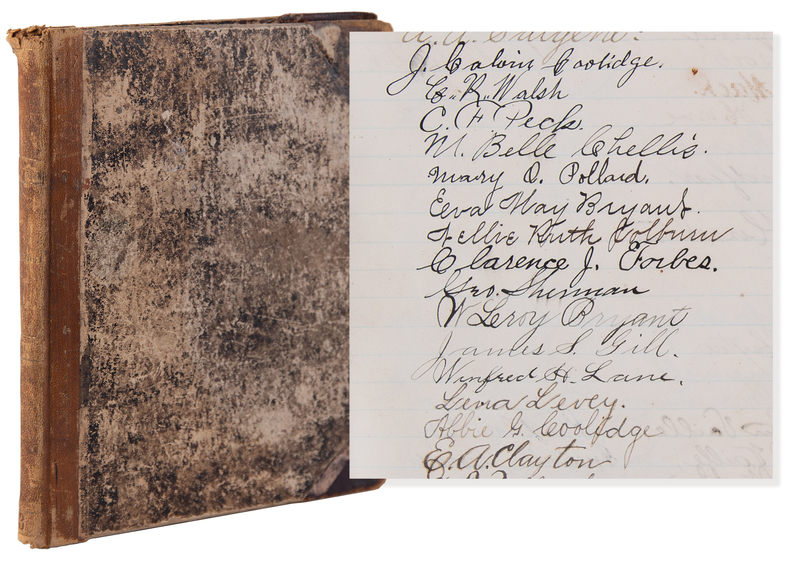 J. Calvin Coolidge.
C. R. Walsh
C. F. Peck.
M. Belle Chellis.
Mary D. Pollard.
Eeva May Bryant.
Nellie Ruth Colburn
Clarence J. Forbes.
Geo. Sherman
W Leroy Bryant
James S. Gill.
Winfred H. Lane.
Lena Levey.
Abbie G. Coolidge
E. A. Clayton